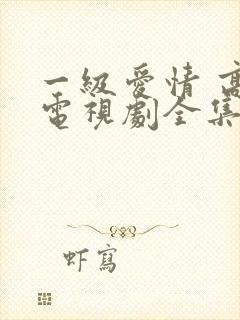 一級愛情 高
電視劇全集
虾寫